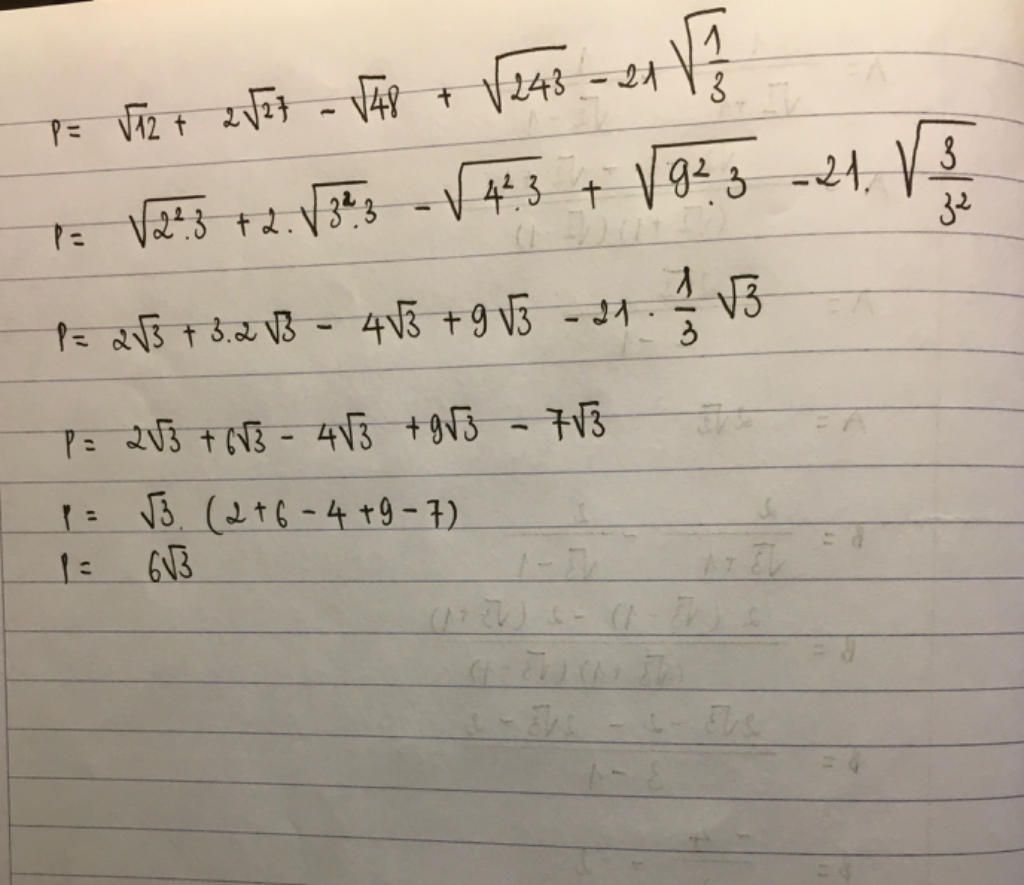 P = √12 + 2√27 - √48 + √243 - 21 √(1/3)
P = √(2².3) + 2.√(3².3) - √(4².3) + √(9².3) - 21. √(3/3²)
P = 2√3 + 3.2√3 - 4√3 + 9√3 - 21 . 1/3 √3
P = 2√3 + 6√3 - 4√3 + 9√3 - 7√3
P = √3. (2+6-4+9-7)
P = 6√3